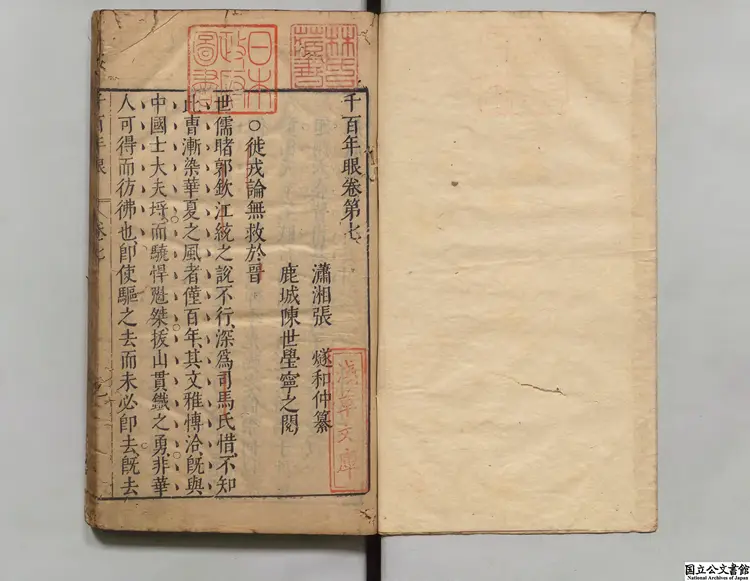 千百年眼卷第七
瀟湘張 燧和仲纂
鹿城陳世壆寧之閱
○徙戎論無救於晉
世儒睹郭欽江統之說不行深爲司馬氏惜不知
此曹漸染華夏之風者僅百年其文雅博洽旣與
中國士大夫埒而驍悍魁桀拔山貫鐵之勇非華
人可得而彷彿也卽使驅之去而未必卽去旣去
千百年眼
卷七
日本
政府
圖書
林氏
藏書
淺草文庫
国立公文書館
National Archives of Japan